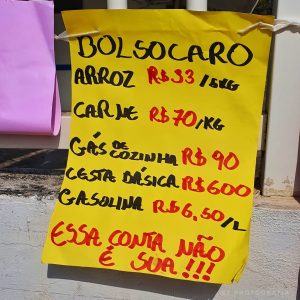 BOLSOCARO
ARROZ R$33/5KG
CARNE R$70/KG
GÁS DE COZINHA R$90
CESTA BÁSICA R$600
GASOLINA R$6,50/L
ESSA CONTA NÃO
É SUA!!!